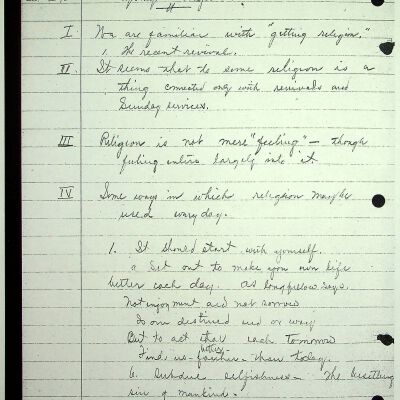 I We are familiar with "getting religion."
1. The recent revival.
II. It seems that to some religion is a
thing connected only with revivals and
Sunday services.
III Religion is not mere "feeling" — though
feeling enters largely into it.
IV Some ways in which religion may be
used every day.
1. It should start with yourself.
a Set out to make your own life
better each day. As Longfellow says.
Not enjoyment and not sorrow
Is our destined end or way
But to act that each tomorrow
Find us farther than today.
better
b. Subdue selfishness — The besetting
sin of mankind.